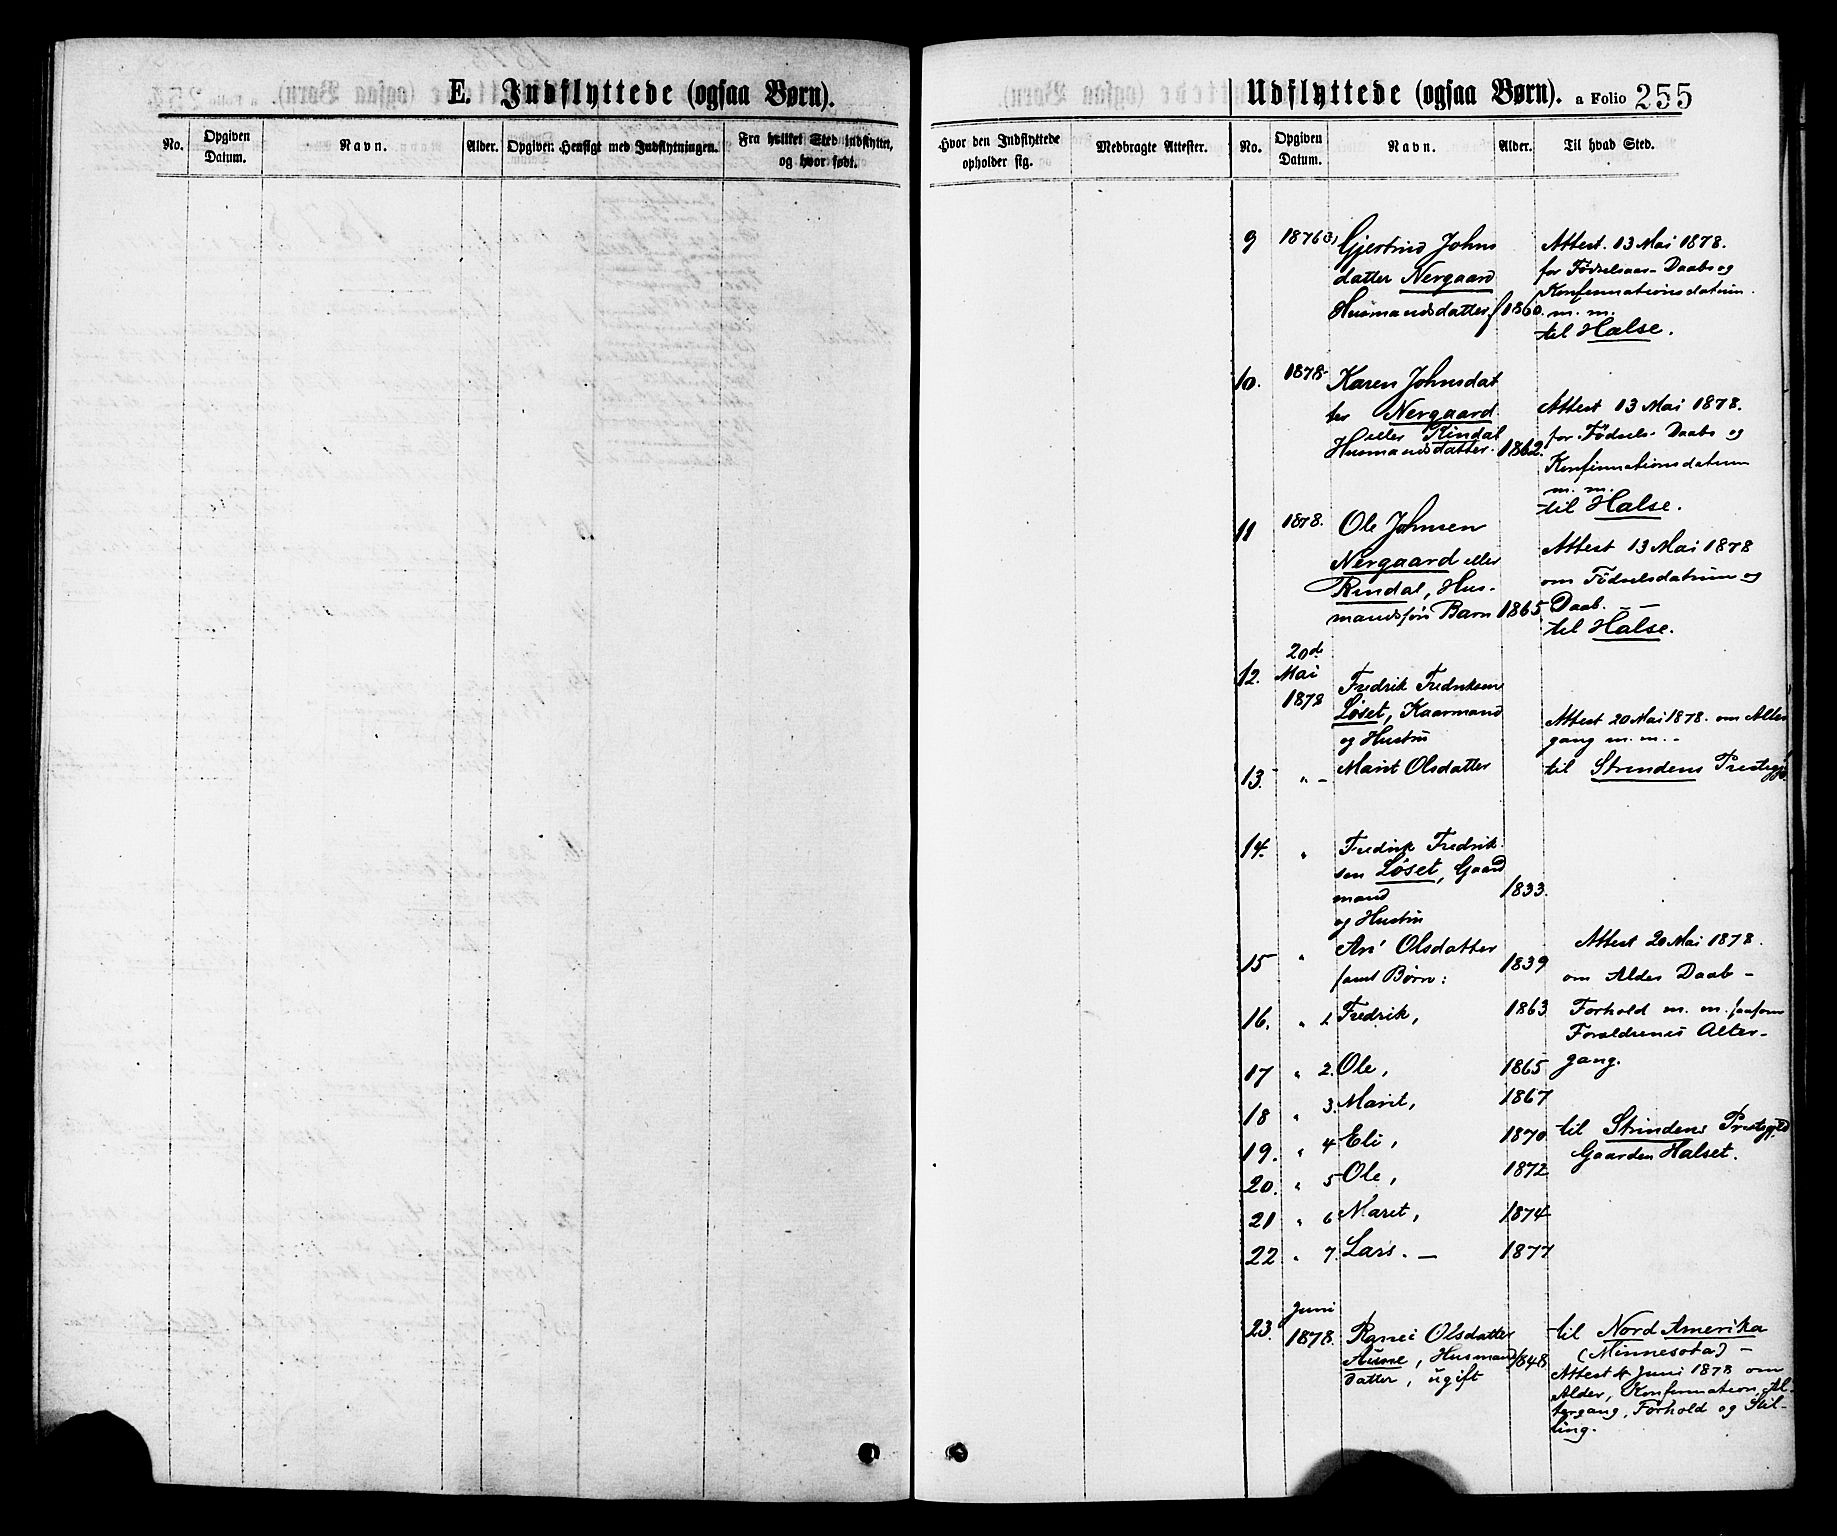 E. Indflyttede (ogsaa Børn).
No.
Opgiven Datum.
Navn.
Alder.
Opgiven Hensigt med Indflytningen.
Fra hvilket Sted indflyttet, og hvor født.
Udflyttede (ogsaa Børn). a Folio 255
Hvor den Indflyttede opholder sig.
Medbragte Attester.
No.
Opgiven Datum.
Navn.
Alder.
Til hvad Sted.
9 1876 Gjertrud Johns
datter Nergaard
Husmandsdatter f 1860.
Attest. 13 Mai 1878.
for Fødselsaar- Daabs og
Konfirmationsdatum
m. m.
til Halse.
10. 1878 Karen Johnsdat
ter Nergaard
eller Rindal
Husmandsdatter. 1862.
Attest 13 Mai 1878.
for Fødsels- Daabs og
Konfirmationsdatum
m. m.
til Halse.
11 1878. Ole Johnsen
Nergaard eller
Rindal, Hus-
mandsfør Barn 1865
Attest 13 Mai 1878
om Fødselsdatum og
Daab. — —
til Halse.
12. 20de Mai 1878 Fredrik Fredriksen
Løset, Kaarmand
og Hustru
13. " – Marit Olsdatter
Attest 20 Mai 1878. om Alter
gang m. m. –
til Strindens Prestegj
14. " Fredrik Fredrik
sen Løset, Gaard
mand 1833.
og Hustru
15 " Ari Olsdatter 1839
samt Børn:
16. " 1 Fredrik, 1863
17 " 2. Ole, 1865
18 " 3. Marit, 1867
19. " 4 Eli, 1870
20. " 5 Ole, 1872
21 " 6 Maret, 1874
22 " 7. Lars. — 1877
Attest 20 Mai 1878.
om Alder Daab –
Forhold m. m. saasom
Forældrenes Alter-
gang.
til Strindens Prestegjld
Gaarden Halset.
23. Juni 1878. Ranei Olsdatter
Aune, Husmand 1848
datter, ugift
til Nord Amerika
(Minnesota) –
Attest 4 Juni 1878 om
Alder, Konfirmation, Al-
tergang, Forhold og Stil-
ling.